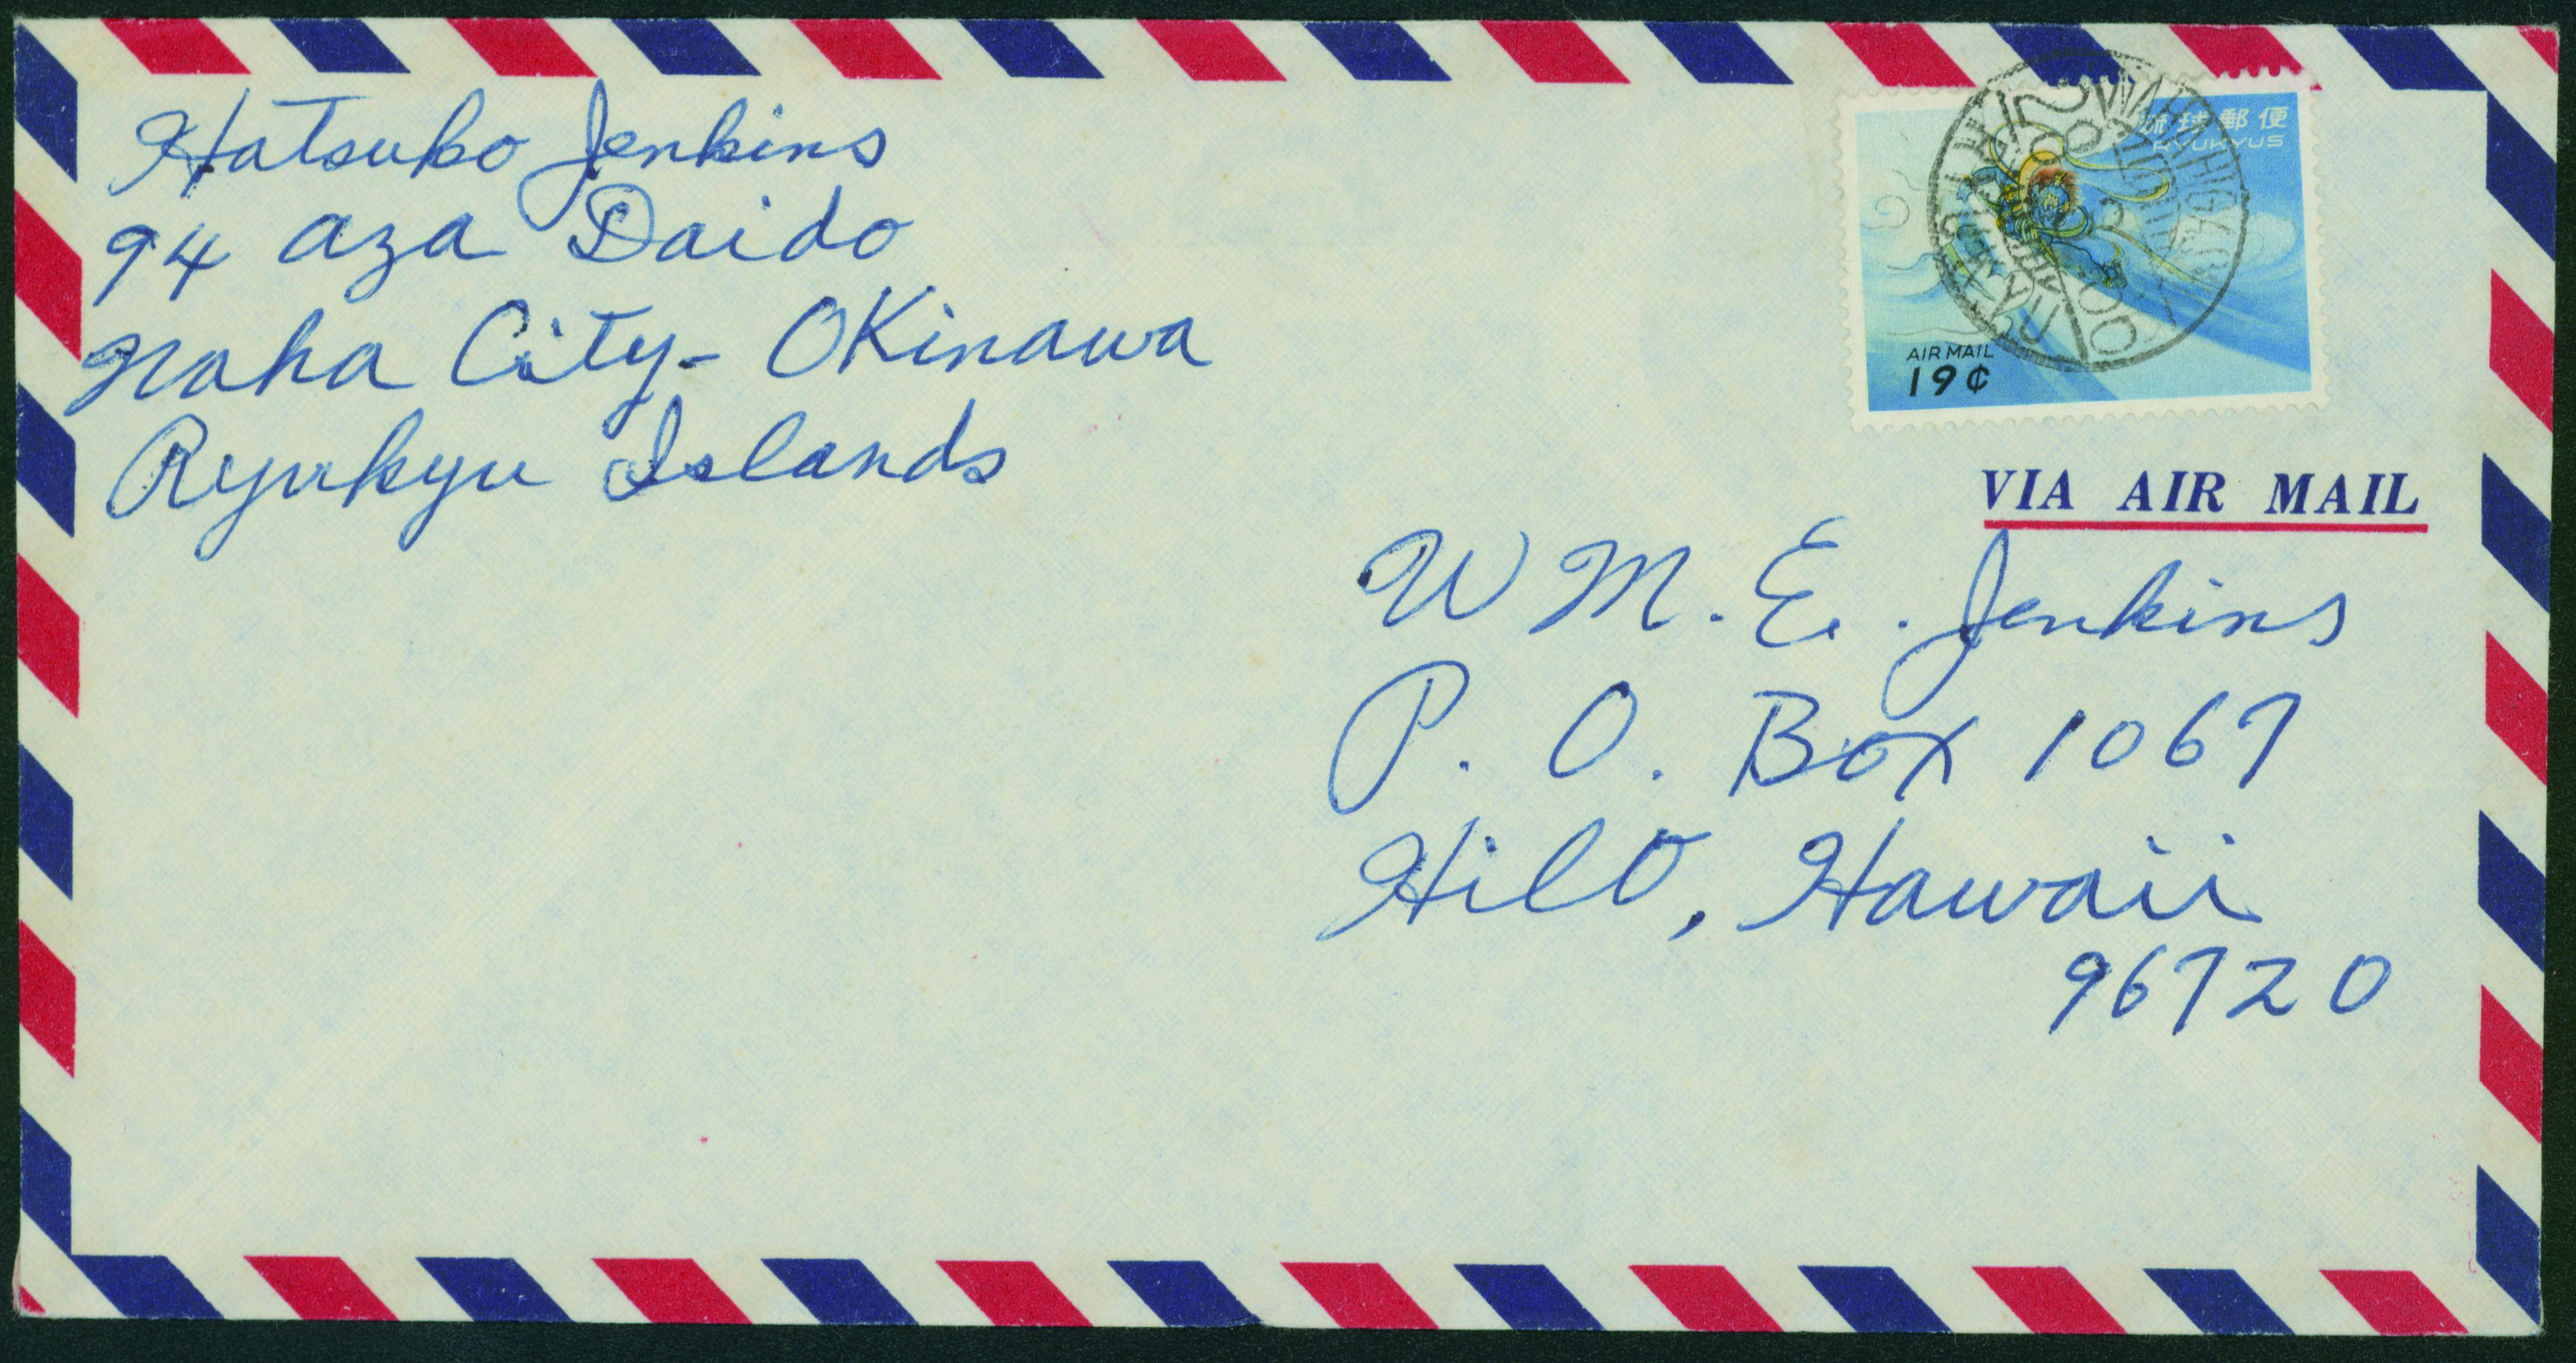 Hatsuko Jenkins
94 aza Daido
Naha City - OKinawa
Ryukyu Islands
琉球郵便
RYUKYUS
AIR MAIL
19¢
VIA AIR MAIL
WM. E. Jenkins
P. O. Box 1067
Hilo, Hawaii
96720